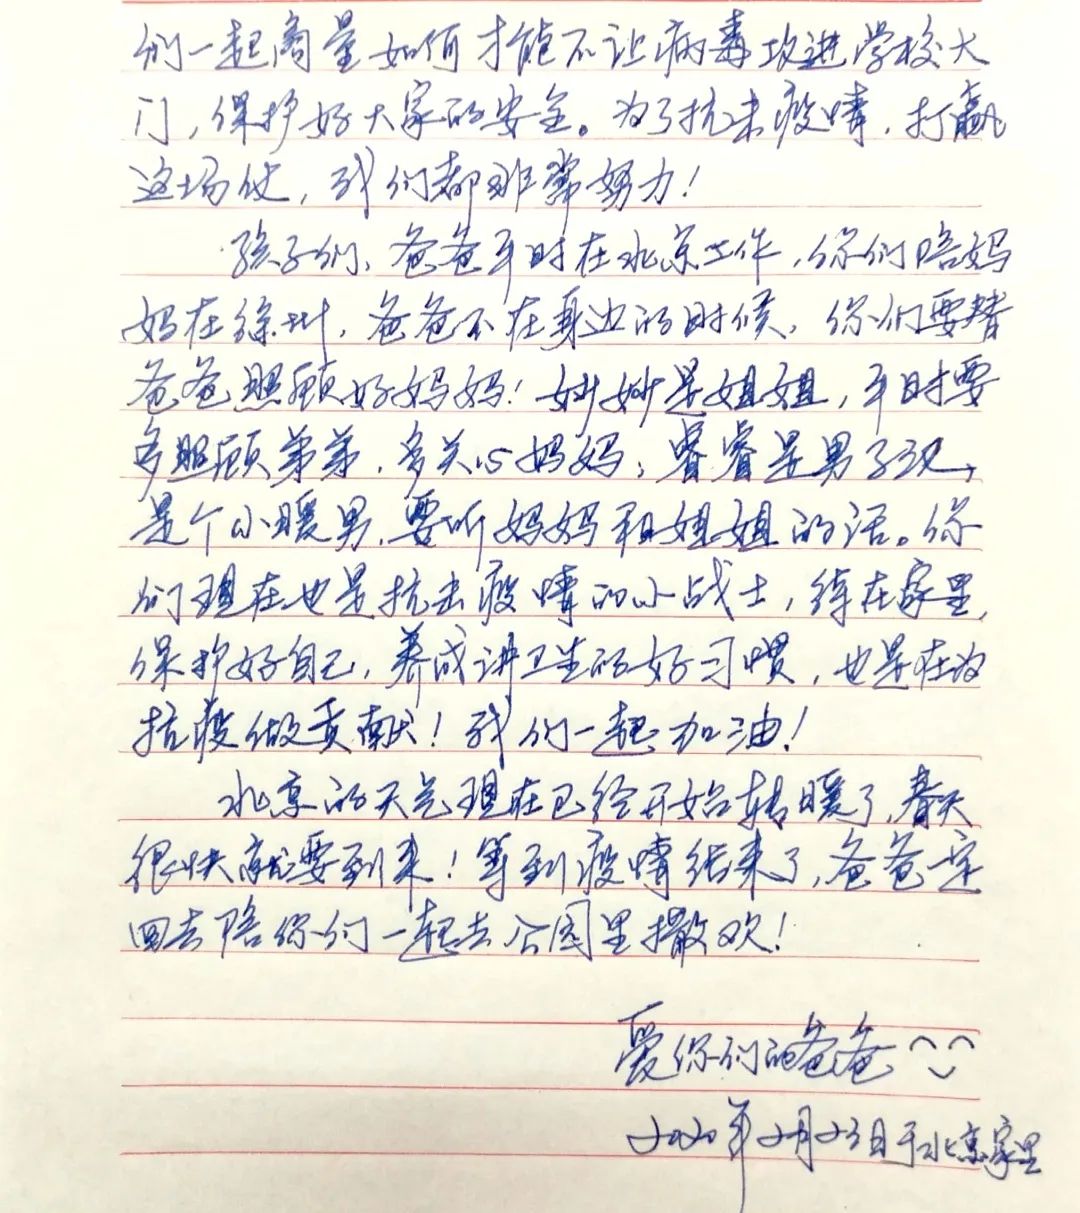 们一起商量如何才能不让病毒攻进学校大
门，保护好大家的安全。为了抗击疫情，打赢
这场仗，我们都非常努力！
孩子们，爸爸平时在北京工作，你们陪妈
妈在徐州，爸爸不在身边的时候，你们要替
爸爸照顾好妈妈！妙妙是姐姐，平时要
多照顾弟弟，多关心妈妈；睿睿是男子汉，
是个小暖男，要听妈妈和姐姐的话。你
们现在也是抗击疫情的小战士，待在家里，
保护好自己，养成讲卫生的好习惯，也是在为
抗疫做贡献！我们一起加油！
北京的天气现在已经开始转暖了，春天
很快就要到来！等到疫情结束了，爸爸一定
回去陪你们一起去公园里撒欢！
爱你们的爸爸
二〇二〇年二月二十三日于北京家里